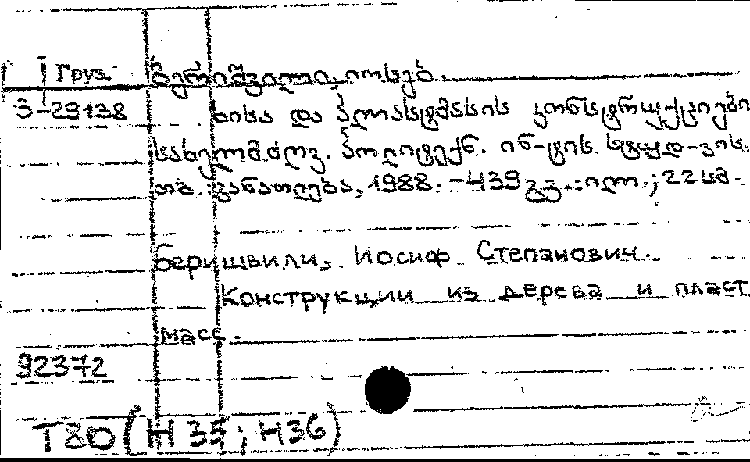 Груз. ბერიშვილი, იოსებ.
3-29438 ხისა და პლასტმასის კონსტრუქციები
სახელმძღვ. პოლიტექნ. ინ-ტის სტუდ-ვის.
თბ. განათლება, 1988. -439 გვ.: ილ.; 22 სმ-
Беришвили, Иосиф Степанович.
Конструкции из дерева и пласт
масс.
92372
Т80 (Н 35; Н36)